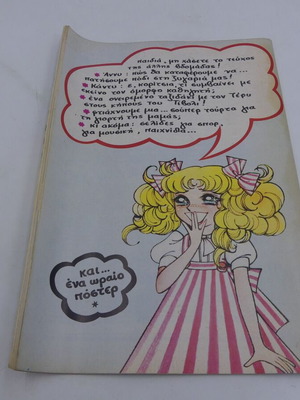 παιδιά, μη χάσετε το τεύχος
της άλλης βδομάδας!
* Άννυ: πώς θα καταφέρουμε να...
πατήσουμε πόδι στη ζυγαριά μας!
* Κάντυ: ε, κορίτσια, τι συμβαίνει με
εκείνο τον όμορφο καθηγητή;
* ένα ονειρεμένο ταξιδάκι με τον Τέρυ
στους κήπους του Τίβολι!
* φτιάχνουμε μια... σούπερ τούρτα για
τη γιορτή της μαμάς;
* κι ακόμα: σελίδες για σπορ,
για μουσική, παιχνίδια...
και...
ένα ωραίο
πόστερ
*